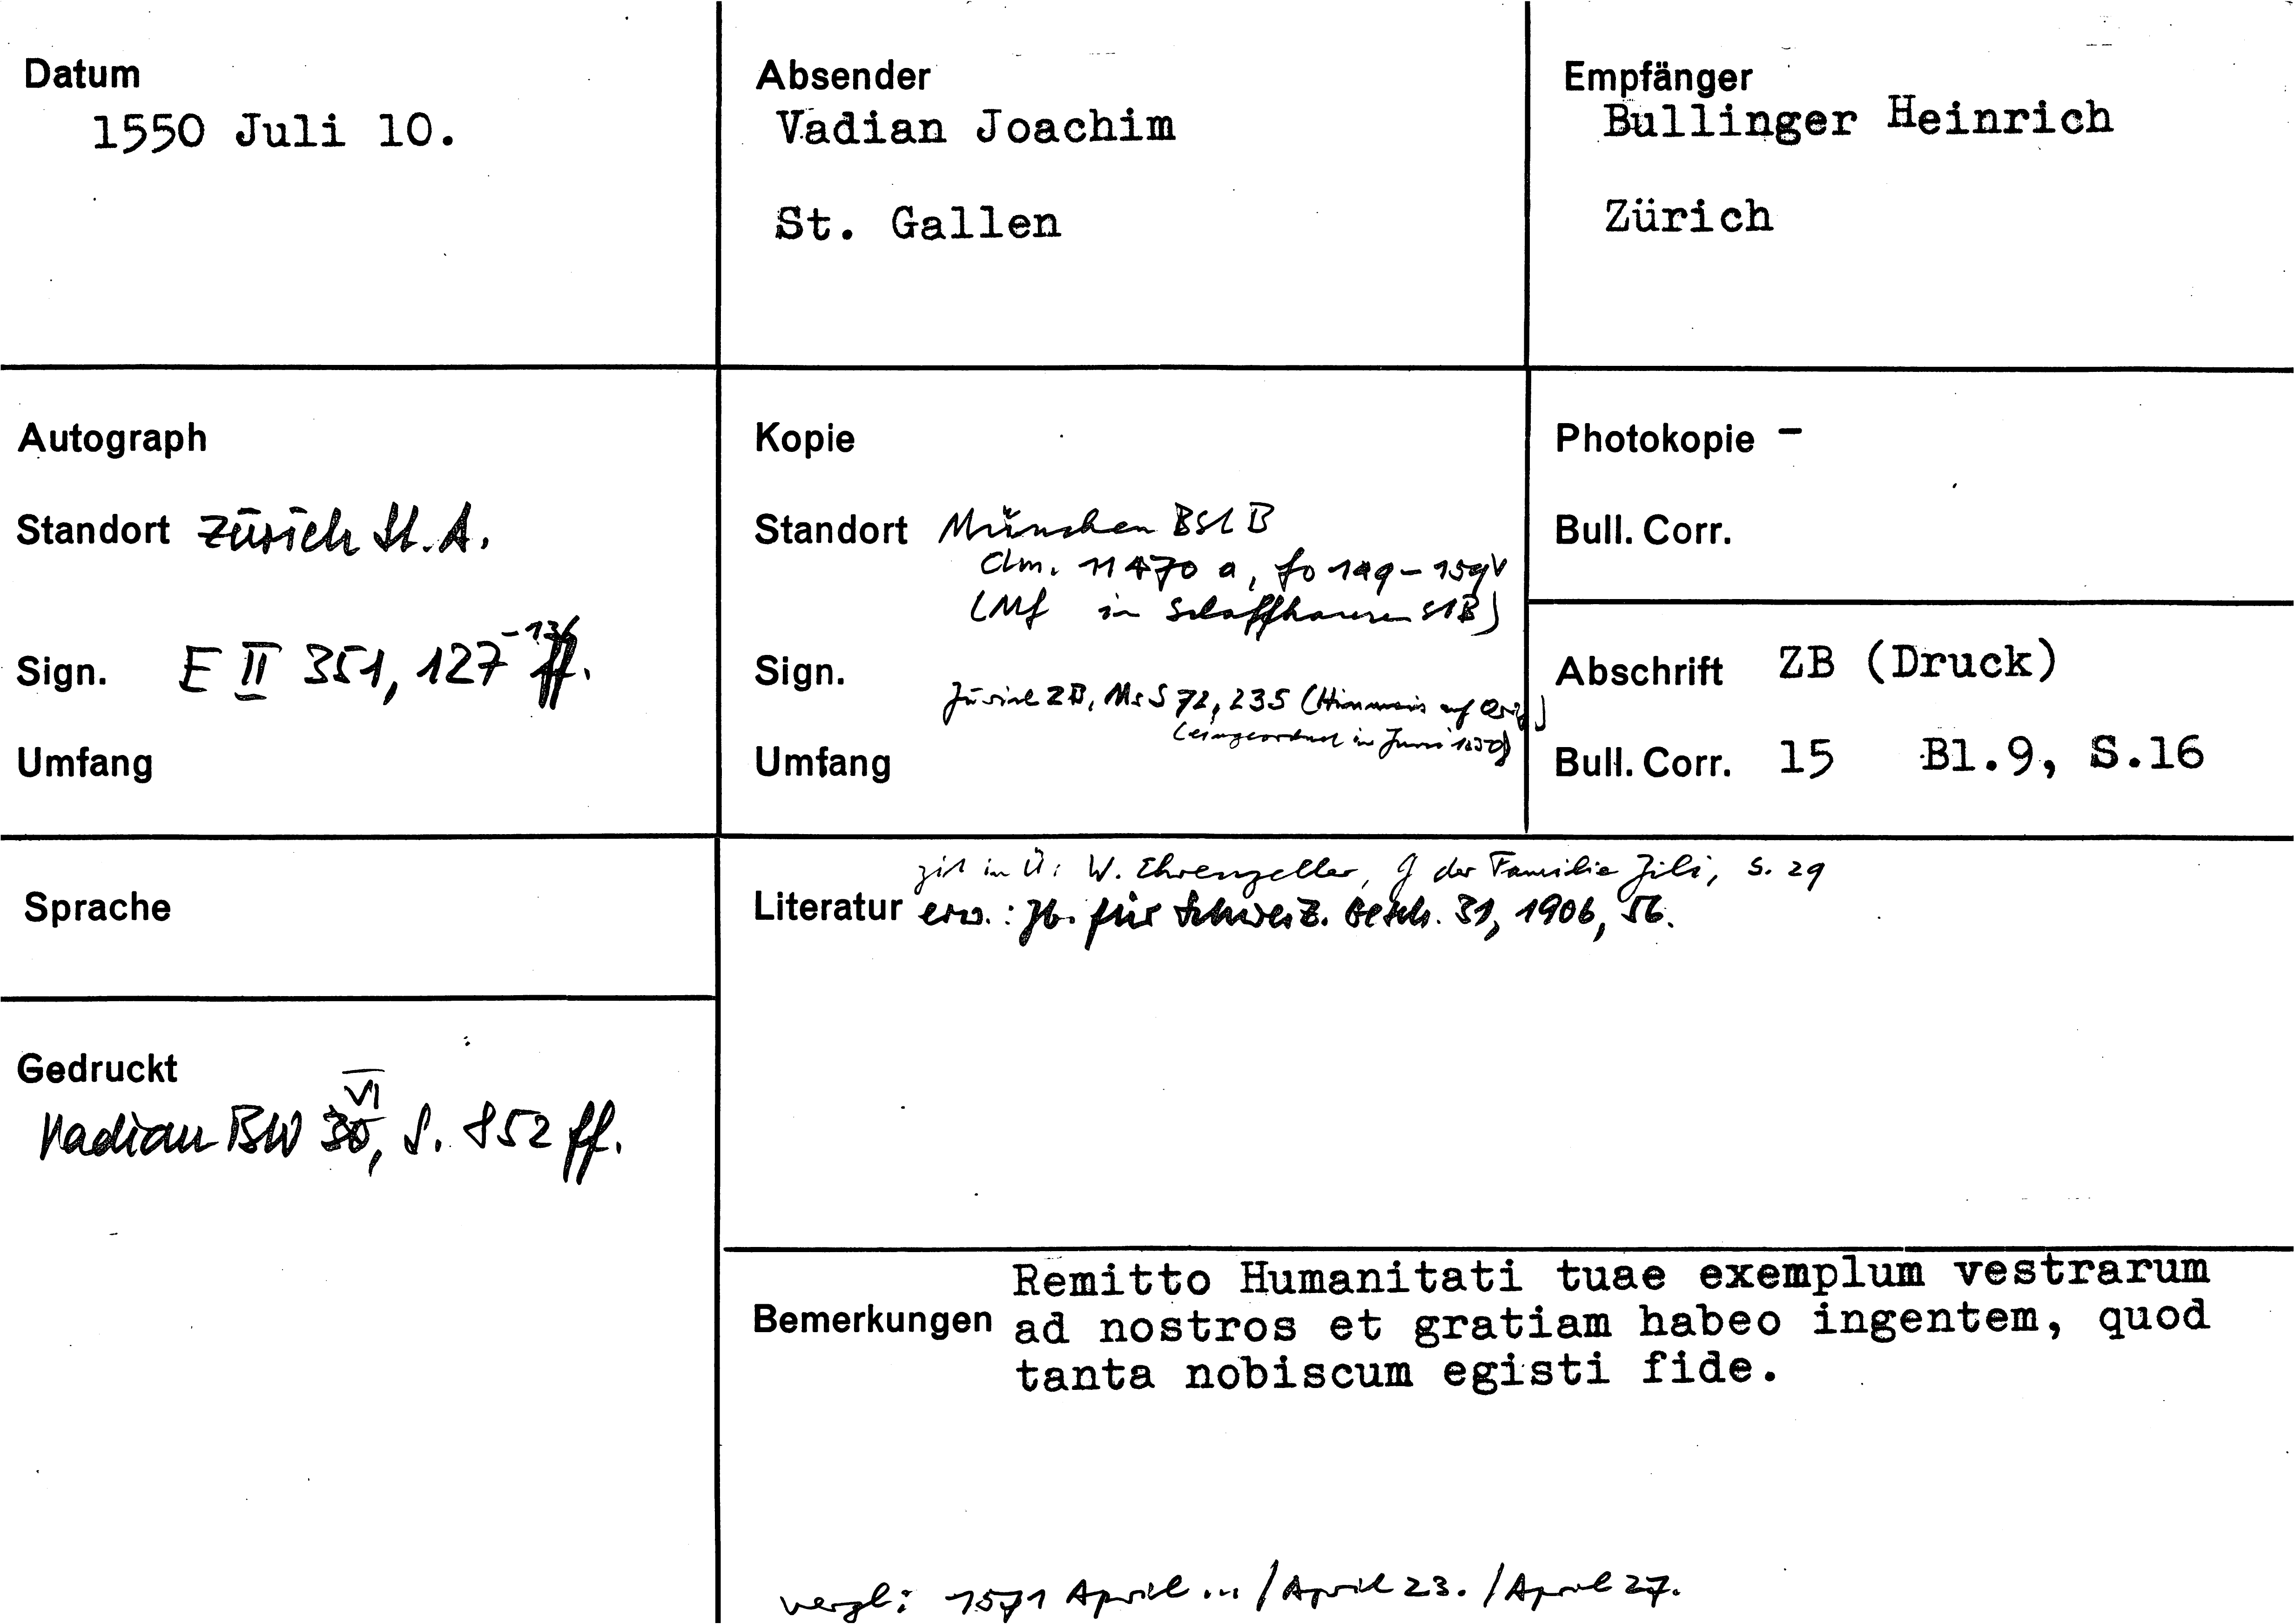 Datum
1550 Juli 10.
Absender
Vadian Joachim
St. Gallen
Empfänger
Bullinger Heinrich
Zürich
Autograph
Standort Zürich St.A.
Sign. E II 351, 127-136
Umfang
Kopie
Standort München BStB
Clm. 11470 a, fo 149-159v
(Mf in Schaffhausen StB)
Sign.
Zürich ZB, Ms S 72, 235 (Hinweis auf Orig.)
(eingeordnet in Juni 1550)
Umfang
Photokopie -
Bull. Corr.
Abschrift ZB (Druck)
Bull. Corr. 15 Bl.9, S.16
Sprache
zit in Ü: W. Ehrenzeller, G der Familie Zili, S. 29
Literatur erw.: Jb. für Schweiz. Gesch. 31, 1906, 56.
Gedruckt
Vadian BW VI, S. 852 ff.
Bemerkungen
Remitto Humanitati tuae exemplum vestrarum
ad nostros et gratiam habeo ingentem, quod
tanta nobiscum egisti fide.
vergl: 1571 April ... / April 23. / April 27.